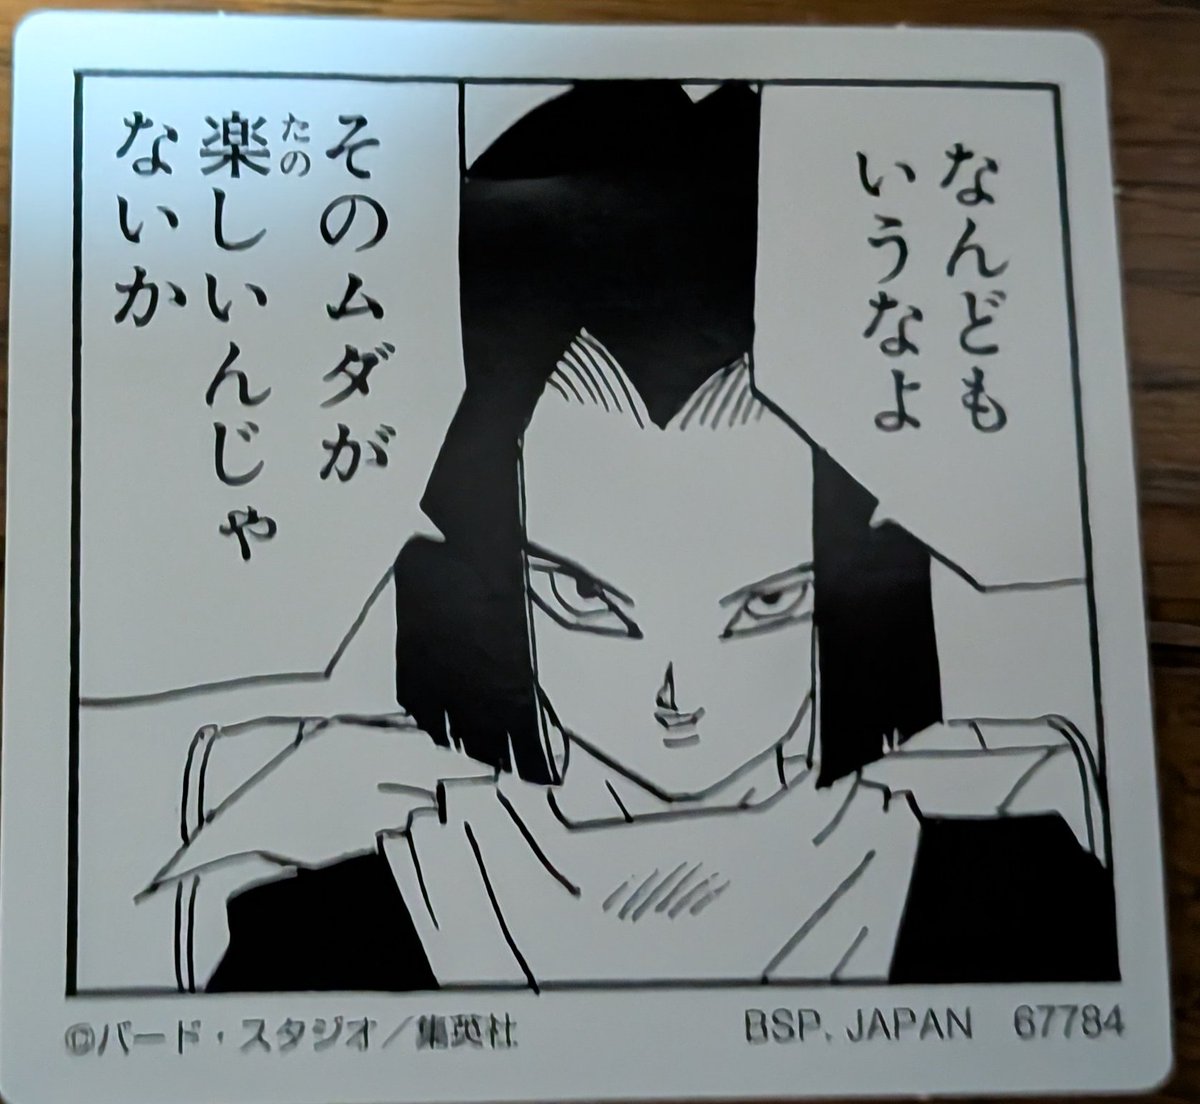 なんども
いうなよ
そのムダが
楽しいんじゃ
たの
ないか
©バード・スタジオ/集英社
BSP. JAPAN 67784